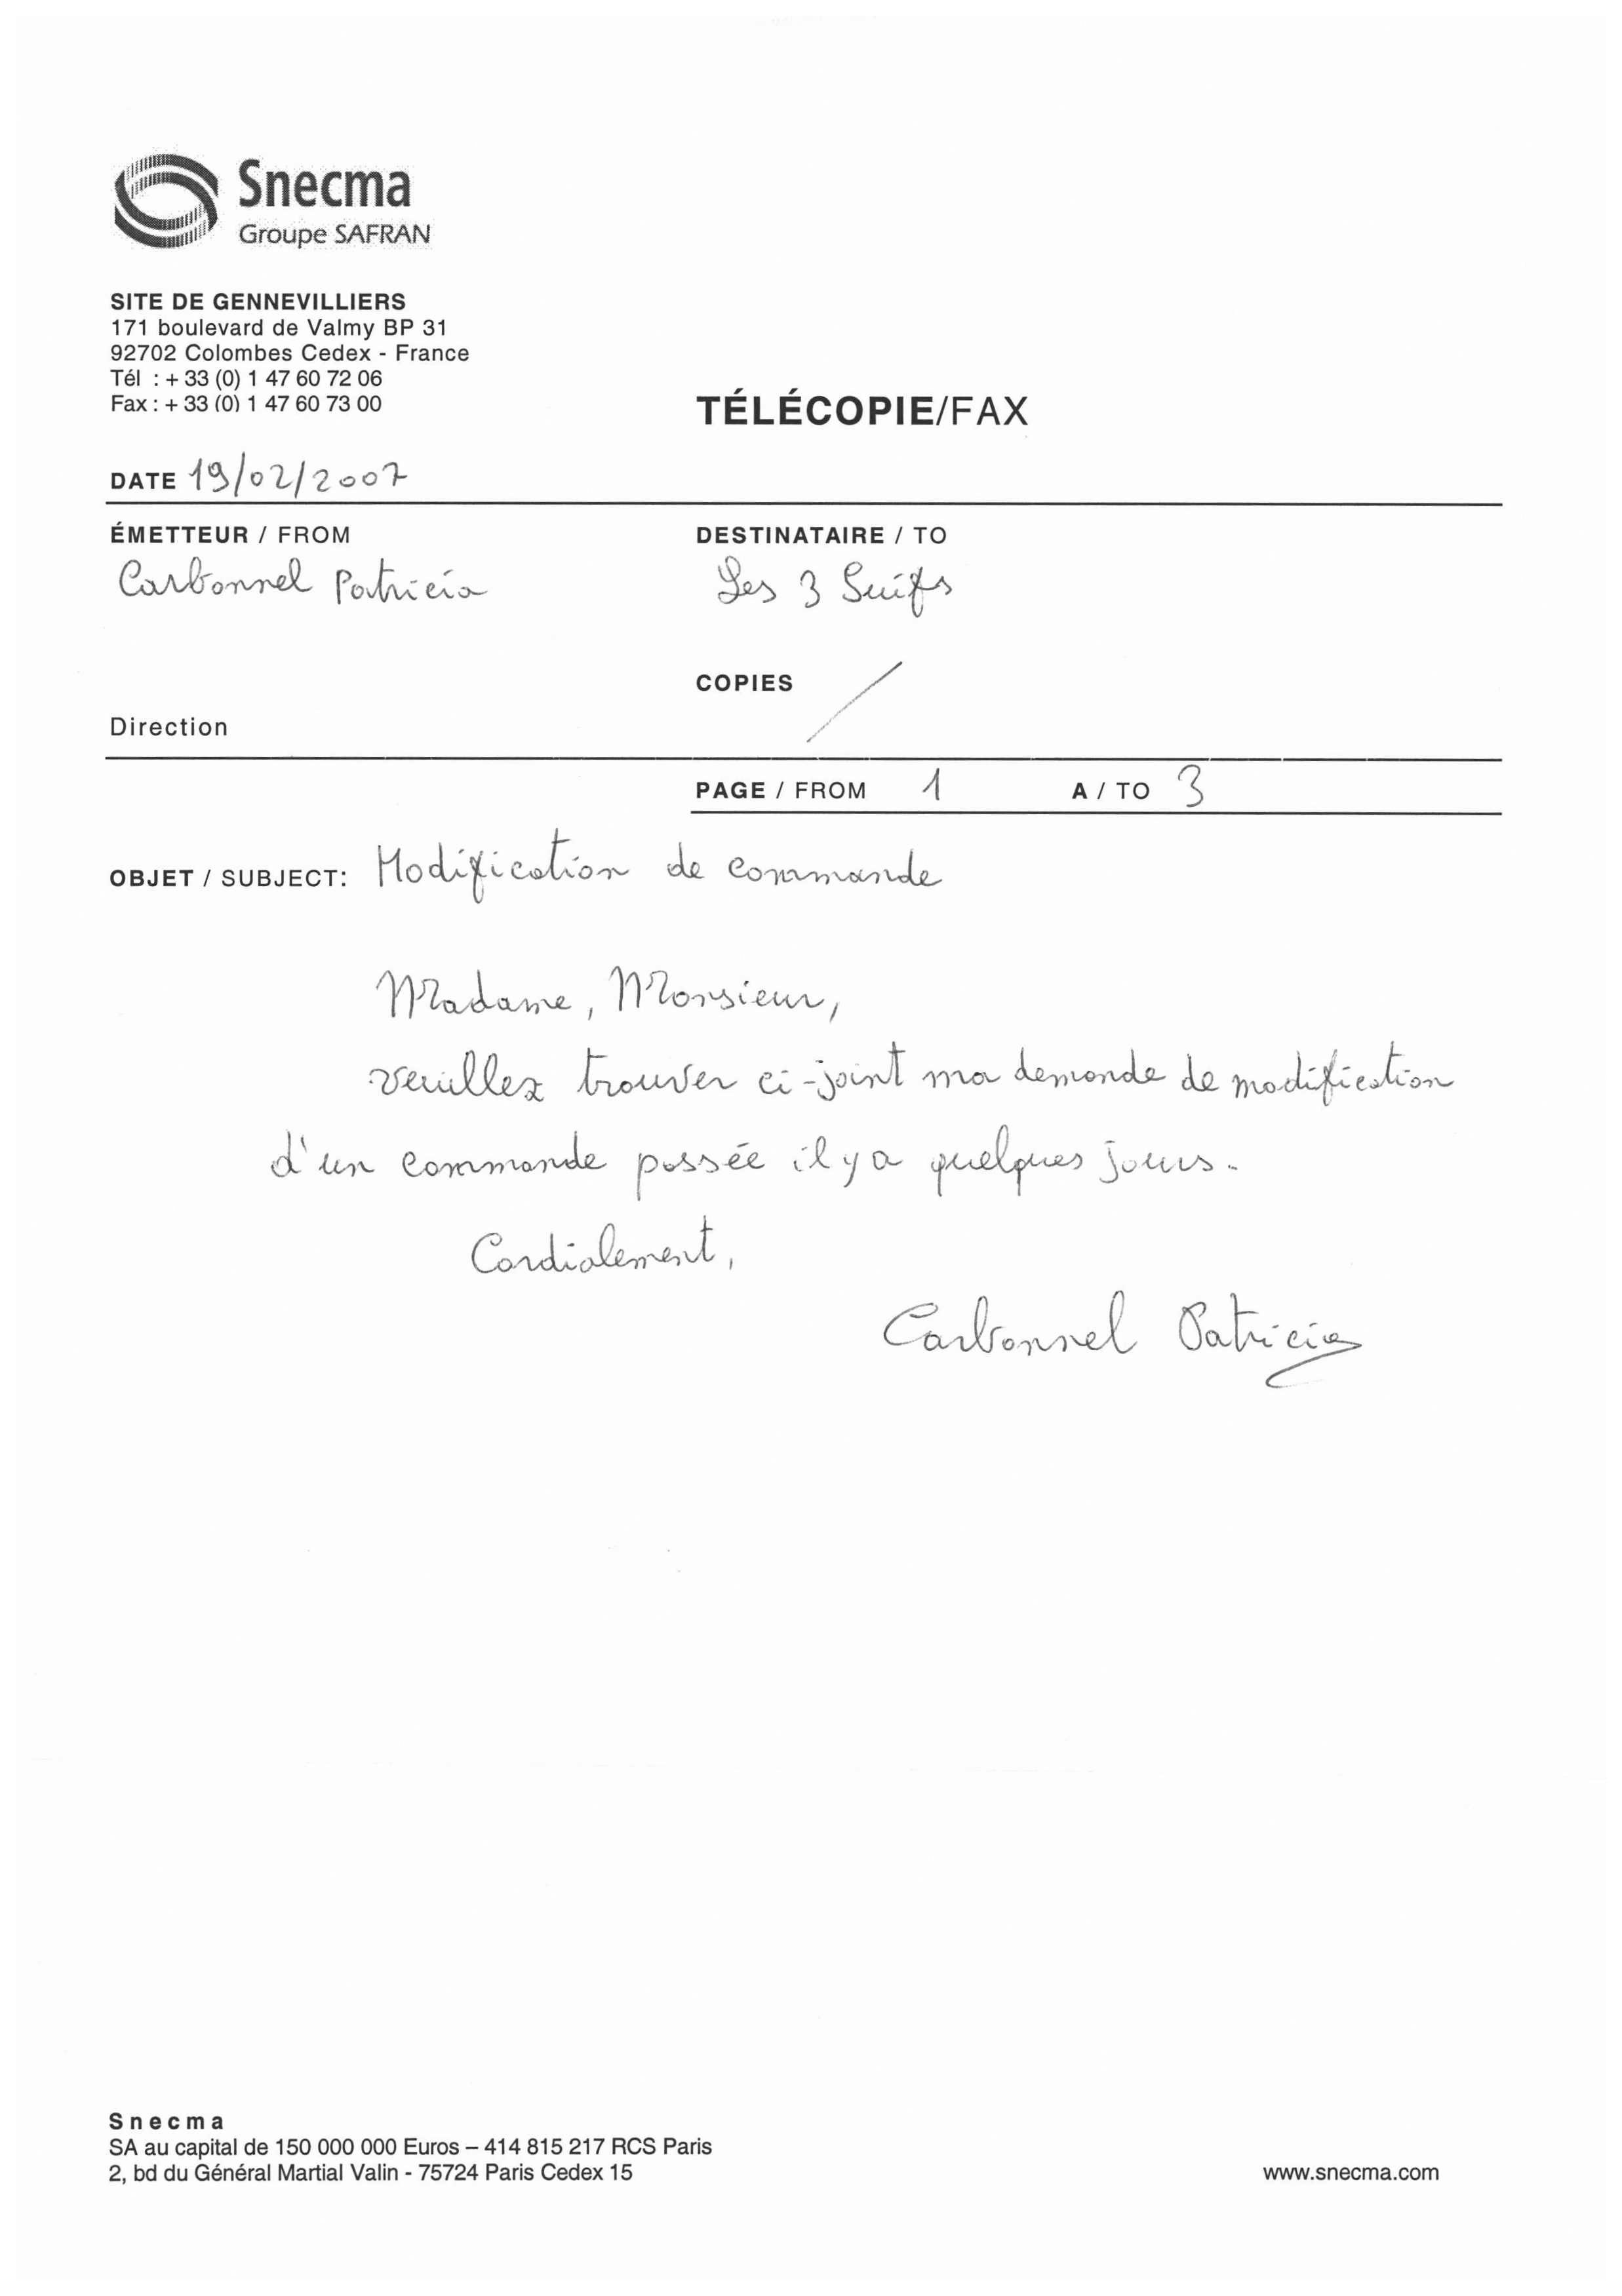 Snecma
Groupe SAFRAN
SITE DE GENNEVILLIERS
171 boulevard de Valmy BP 31
92702 Colombes Cedex - France
Tél : + 33 (0) 1 47 60 72 06
Fax : + 33 (0) 1 47 60 73 00
TÉLÉCOPIE/FAX
DATE 19/02/2007
ÉMETTEUR / FROM
DESTINATAIRE / TO
Carbonnel Patricia
Les 3 Suifs
COPIES /
Direction
PAGE / FROM 1 A / TO 3
OBJET / SUBJECT: Modification de commande
Madame, Monsieur,
veuillez trouver ci-joint ma demande de modification
d'un commande passée il y a quelques jours.
Cordialement,
Carbonnel Patricia
Snecma
SA au capital de 150 000 000 Euros – 414 815 217 RCS Paris
2, bd du Général Martial Valin - 75724 Paris Cedex 15
www.snecma.com